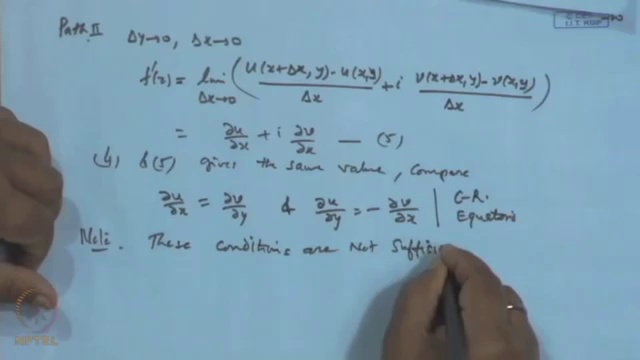 Path II Δy→0, Δx→0
f'(z) = lim Δx→0 ( u(x+Δx, y) - u(x,y) / Δx + i v(x+Δx, y) - v(x,y) / Δx )
= ∂u/∂x + i ∂v/∂x — (5)
(4) & (5) gives the same value, compare
∂u/∂x = ∂v/∂y & ∂u/∂y = - ∂v/∂x | C-R. Equations
Note. These conditions are not suffici
I.I.T. KGP
NPTEL